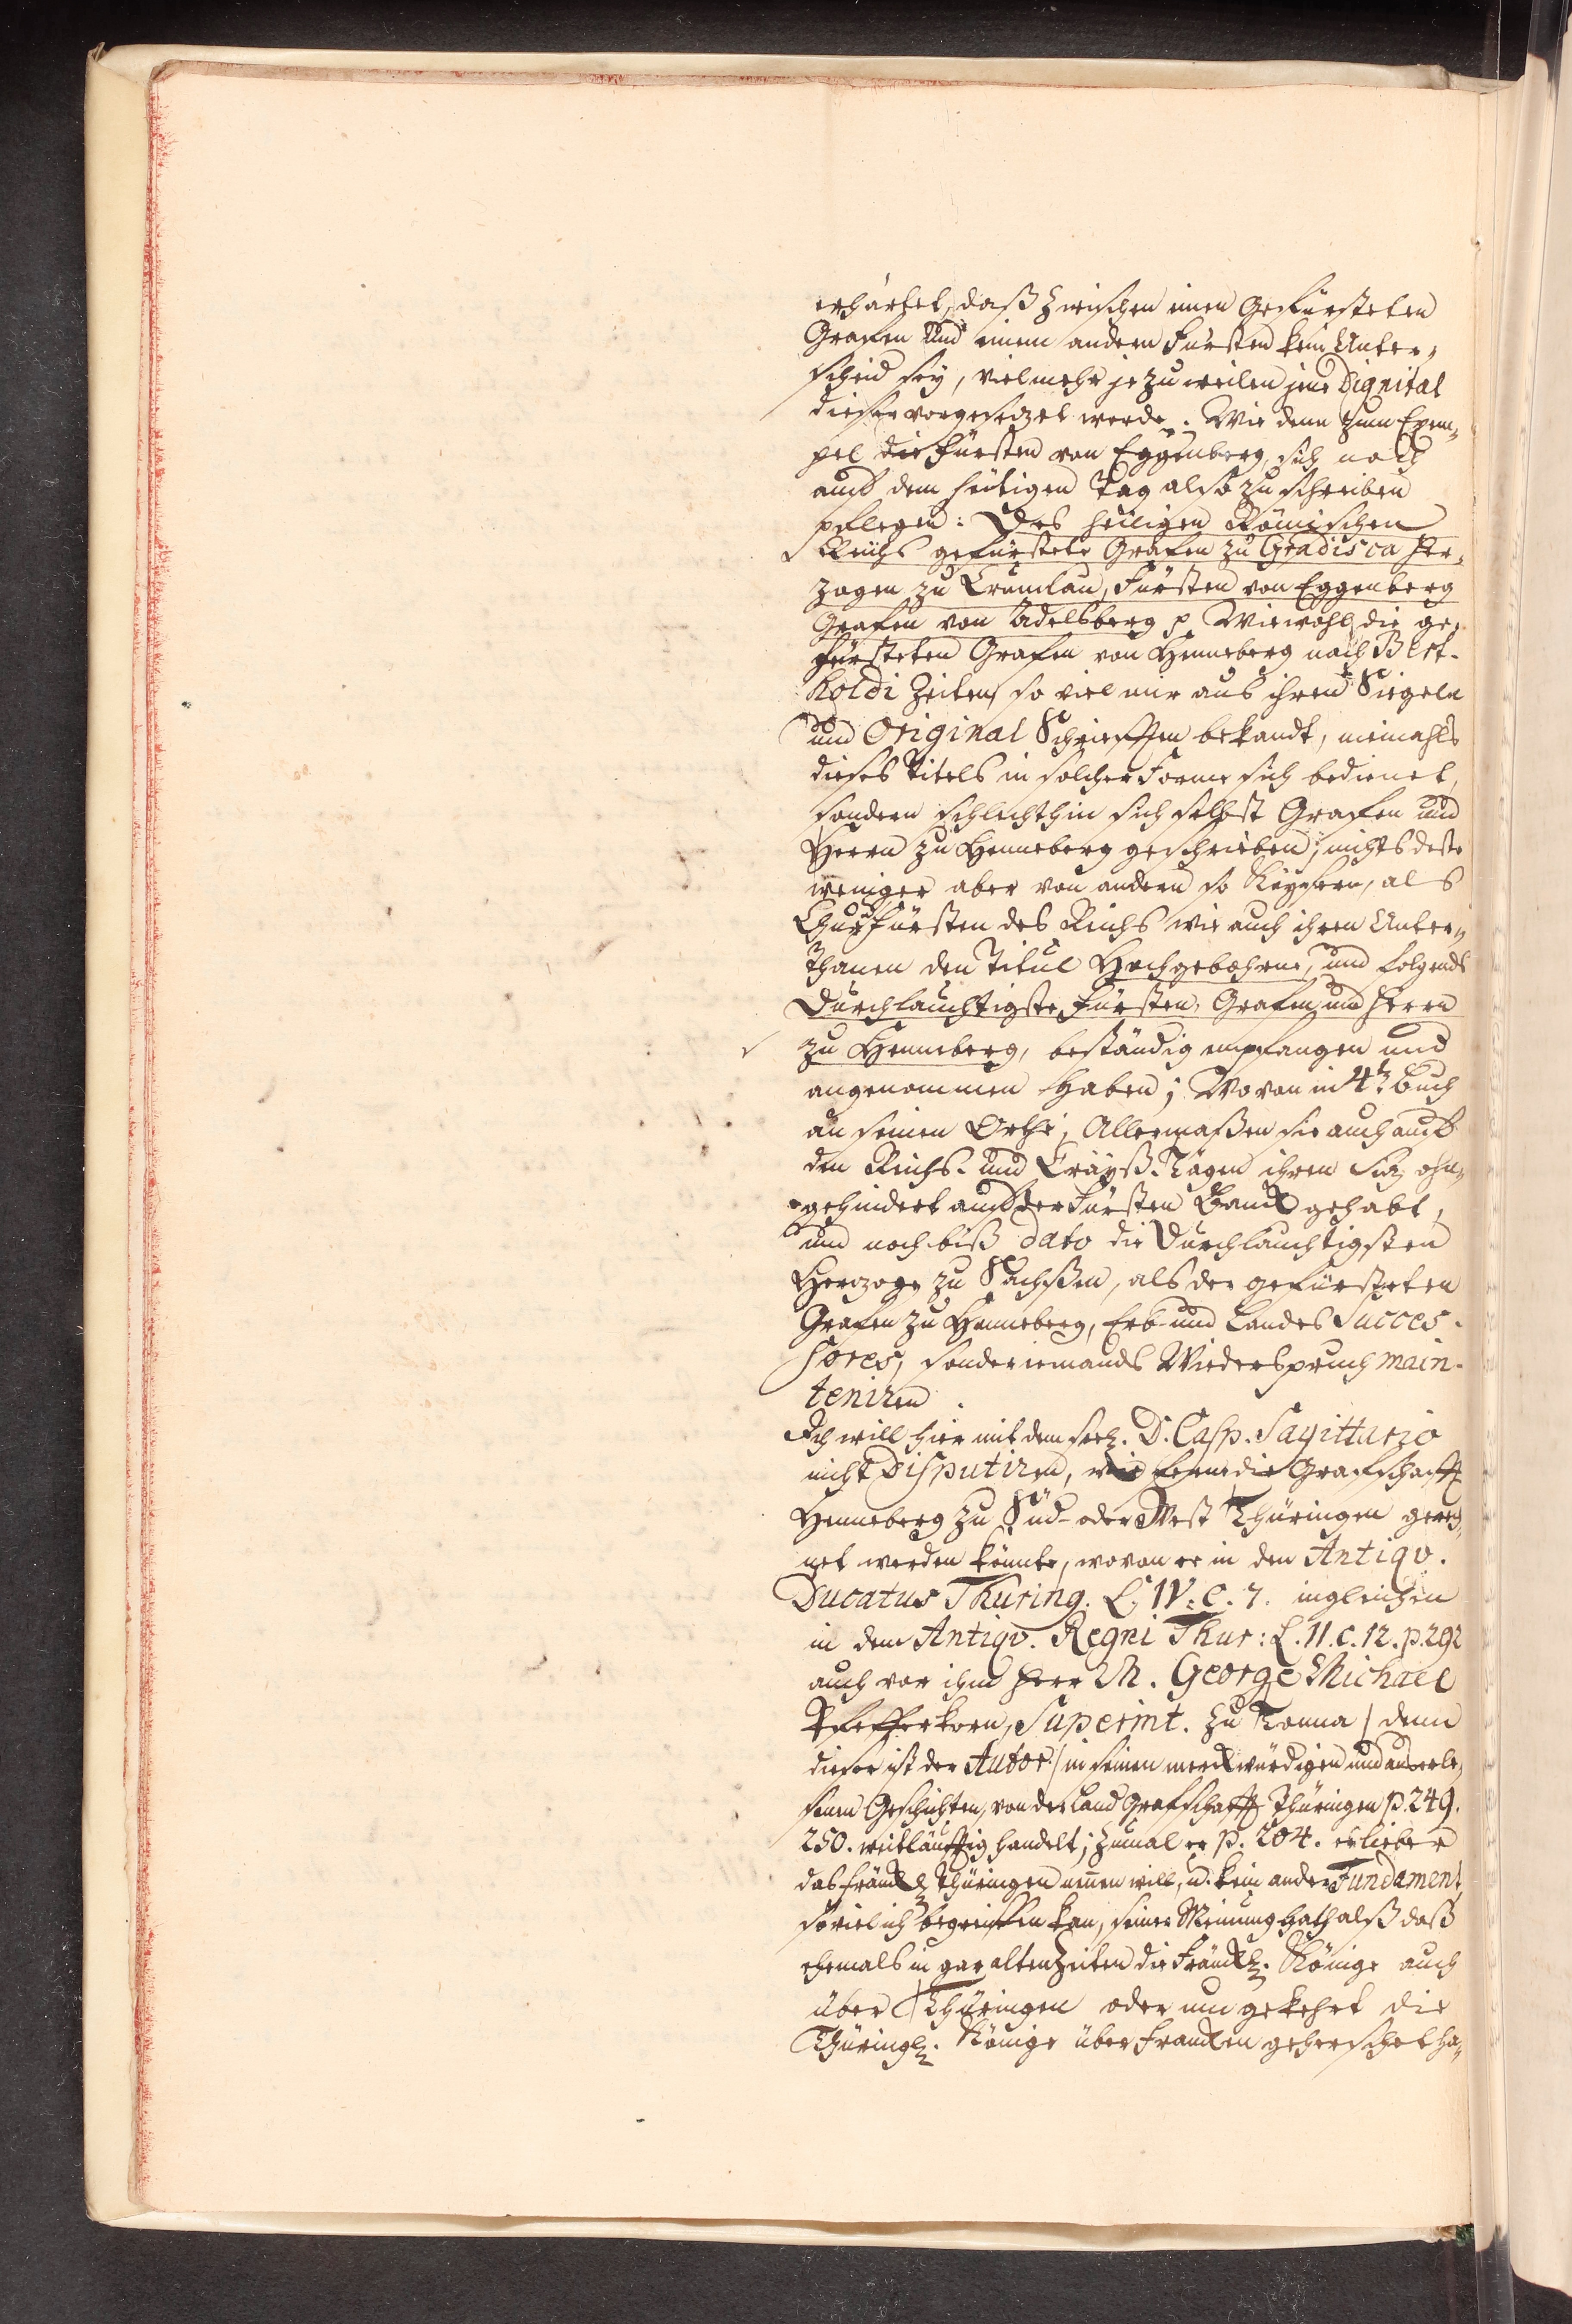 erhärtet, daß zwischen einen Gefürsteten
Grafen und einem andern Fürsten kein Unter-
scheid sey, vielmehr je zu weilen jene Dignitat
dieser vorgesezet werde. Wie denn zum Exem-
pel die Fürsten von Eggenberg, sich noch
auf dem heutigen Tag also zu schreiben
pflegen: Des heiligen Römischen
Reichs gefürstete Grafen zu Gradisca Her-
zogen zu Crumlau, Fürsten von Eggenberg
Grafen von Adelsberg p Wiewohl die ge-
fürsteten Grafen von Henneberg nach Bert-
holdi Zeiten so viel mir aus ihren Siegeln
und Original Schriefften bekandt, niemahls
dieses Titels in solcher Forme sich bedienet,
sondern schlechthin sich selbst Grafen und
Herrn zu Henneberg geschrieben; nichts deste
weniger aber von andern so Käysern, als
Churfürsten des Reichs wie auch ihren Unter-
thanen den Titul Hochgebohrne, und folgends
Durchlauchtigste Fürsten, Grafen und Herrn
zu Henneberg, beständig empfangen und
angenommen haben; Wovon in 4t. Buch
an seinen Orthe; Allermaßen sie auch auf
den Reichs- und Crayß-Tägen ihren Siz ohn-
gehindert auf der Fürsten Banck gehabt,
und noch biß dato die Durchlauchtigsten
Herzoge zu Sachßen, als der gefürsteten
Grafen zu Henneberg, Erb- und Landes Succes-
sores, sonder iemands Wiederspruch main-
teniren.
Ich will hier mit dem seel. D. Casp. Sagittario
nicht disputiren, wie ferne die Grafschafft
Henneberg zu Süd- oder West Thüringen gerech-
net werden könnte, wovon er in den Antiqv.
Ducatus Thuring. L. IV. c. 7. ingleichen
in dem Antiqv. Regni Thur: L. II. c. 12. p. 292
auch vor ihm Herr M. George Michael
Pfefferkorn, Superint. zu Tonna / denn
dieser ist der Autor / in seinen merckwürdigen und auserle-
senen Geschichten, von der Land Grafschafft Thüringen p. 249.
250. weitläufftig handelt; zumal er p. 204. es lieber
das Fränckl. Thüringen nennen will, u. kein ander Fundament
so viel ich begreiffen kan, seiner Meinung hat, alß daß
ehemals in gar alten Zeiten die Fränckl. Könige auch
über Thüringen oder umgekehrt die
Thüringl. Könige über Francken geherschet ha-